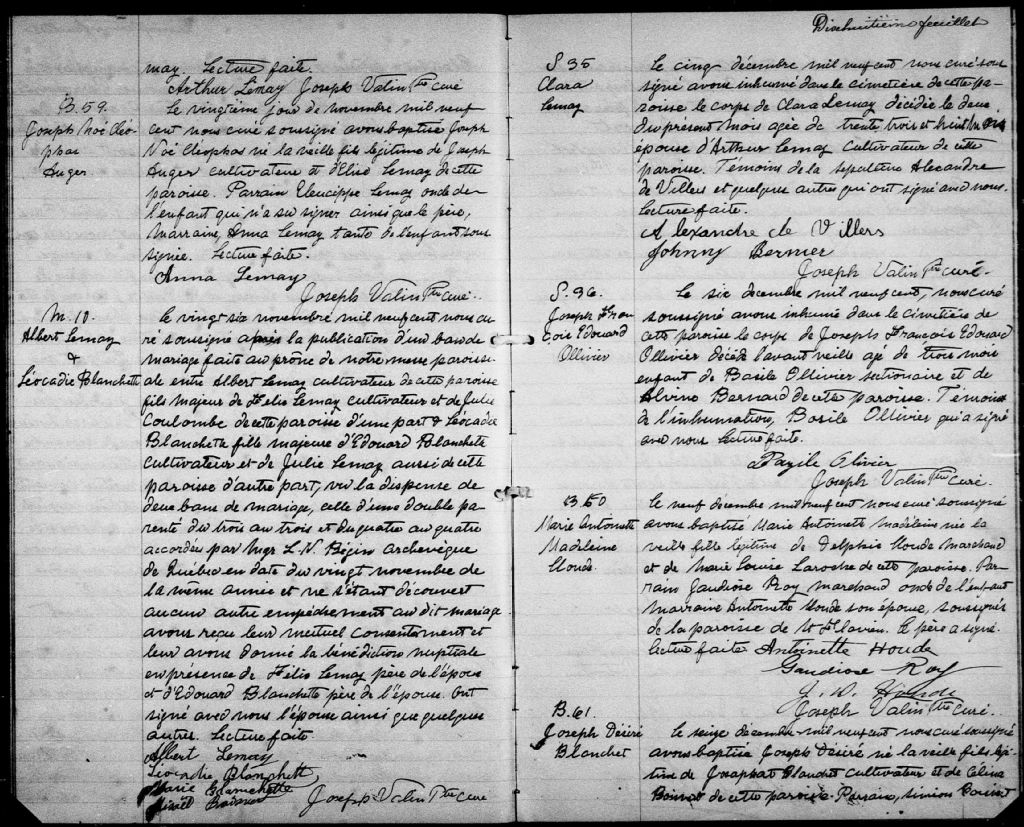 may. Lecture faite.
Arthur Lemay Joseph Valin Ptre curé
B. 59.
Joseph Noé Cléo-
phas
Auger
Le vingtième jour de novembre mil neuf
cent nous curé soussigné avons baptisé Joseph
Noé Cléophas né la veille fils légitime de Joseph
Auger cultivateur et d'Elise Lemay de cette
paroisse. Parrain Leucippe Lemay oncle de
l'enfant qui n'a su signer ainsi que le père,
Marraine, Anna Lemay tante de l'enfant sous
signée. Lecture faite.
Anna Lemay
Joseph Valin Ptre curé.
M. 10.
Albert Lemay
&
Léocadie Blanchette
Le vingt six novembre mil neuf cent nous cu
ré soussigné après la publication d'un ban de
mariage faite au prône de notre messe paroissi-
ale entre Albert Lemay cultivateur de cette paroisse
fils majeur de Félix Lemay cultivateur et de Julie
Coulombe de cette paroisse d'une part & Léocadie
Blanchette fille majeure d'Edouard Blanchette
cultivateur et de Julie Lemay aussi de cette
paroisse d'autre part, vu la dispense de
deux bans de mariage, celle d'une double pa-
renté du trois au trois et du quatre au quatre
accordée par Mgr L. N. Bégin archevêque
de Québec en date du vingt novembre de
la même année et ne s'étant découvert
aucun autre empêchement au dit mariage
avons reçu leur mutuel consentement et
leur avons donné la bénédiction nuptiale
en présence de Félix Lemay père de l'époux
et d'Edouard Blanchette père de l'épouse. Ont
signé avec nous l'épouse ainsi que quelques
autres. Lecture faite
Albert Lemay
Léocadie Blanchett
Marie Blanchette
Joseph Valin Ptre curé
Dixhuitième feuillet
S 35
Clara
Lemay
Le cinq décembre mil neuf cent nous curé sous
signé avons inhumé dans le cimetière de cette pa-
roisse le corps de Clara Lemay décédée le deux
du présent mois agée de trente trois et huit
épouse d'Arthur Lemay cultivateur de cette
paroisse. Témoins de la sépulture Alexandre
de Villers et quelques autres qui ont signé avec nous.
Lecture faite.
Alexandre de Villers
Johnny Bernier
Joseph Valin Ptre curé.
S. 36.
Joseph Fran
çois Edouard
Ollivier
Le six décembre mil neuf cent, nous curé
soussigné avons inhumé dans le cimetière de
cette paroisse le corps de Joseph François Edouard
Ollivier décédé l'avant veille agé de trois mois
enfant de Basile Ollivier sectionaire et de
Alvina Bernard de cette paroisse. Témoins
de l'inhumation, Basile Ollivier qui a signé
avec nous Lecture faite.
Bazile Olivier
Joseph Valin Ptre Curé.
B 60
Marie Antoinette
Madeleine
Houde.
Le neuf décembre mil neuf cent nous curé soussigné
avons baptisé Marie Antoinette Madeleine née la
veille fille légitime de Delphis Houde Marchand
et de Marie Louise Laroche de cette paroisse. Par-
rain Gaudiose Roy marchand oncle de l'enfant
Marraine Antoinette Houde son épouse, soussignés
de la paroisse de St Flavien. Le père a signé.
Lecture faite Antoinette Houde
Gaudiose Roy
J. D. Houde
Joseph Valin Ptre Curé.
B. 61.
Joseph Désiré
Blanchet
Le seize décembre mil neuf cent nous curé soussigné
avons baptisé Joseph Désiré né la veille fils légi
time de Josaphat Blanchet cultivateur et de Célina
Boisvert de cette paroisse. Parrain, Siméon Boisvert